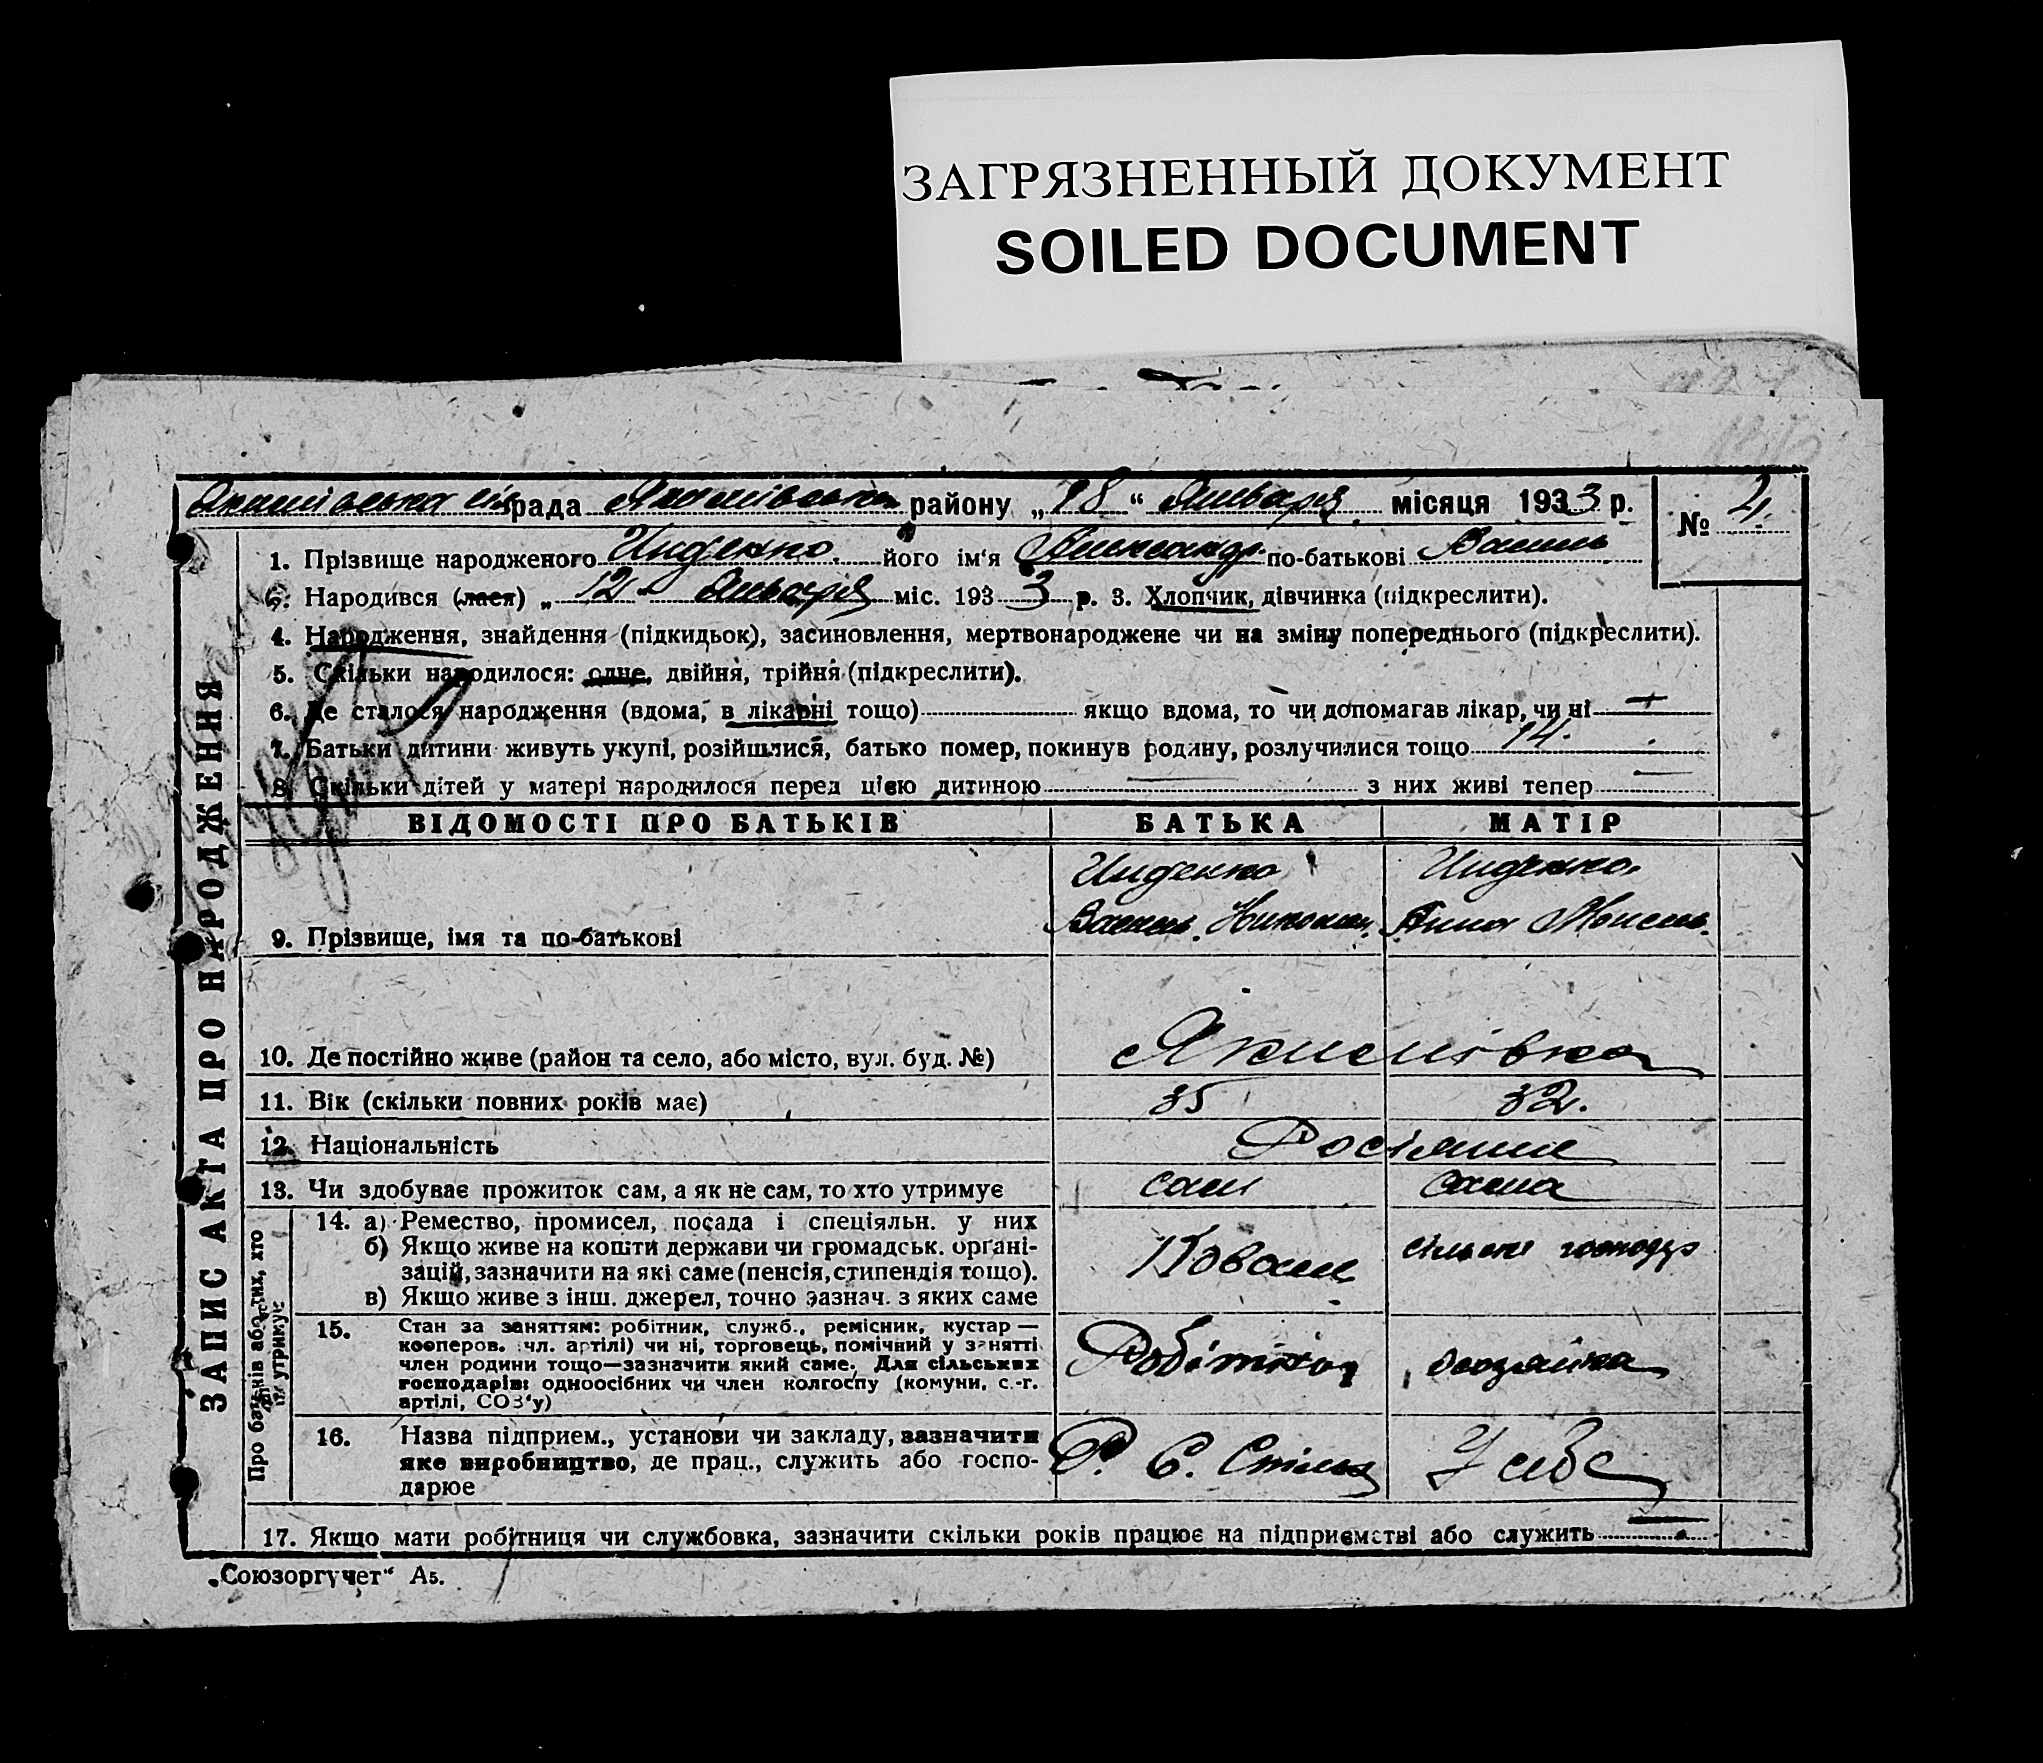 ЗАГРЯЗНЕННЫЙ ДОКУМЕНТ
SOILED DOCUMENT
рада Якимівська району „18“ Января місяця 1933 р. № 4.
ЗАПИС АКТА ПРО НАРОДЖЕННЯ
1. Прізвище народженого його ім‘я Александр. по-батькові Василь
2. Народився (лася) „12“ Января міс. 1933 р. 3. Хлопчик, дівчинка (підкреслити).
4. Народження, знайдення (підкидьок), засиновлення, мертвонароджене чи на зміну попереднього (підкреслити).
5. Скільки народилося: одне, двійня, трійня (підкреслити).
6. Де сталося народження (вдома, в лікарні тощо) якщо вдома, то чи допомагав лікар, чи ні +
7. Батьки дитини живуть укупі, розійшлися, батько помер, покинув родину, розлучилися тощо 14.
8. Скільки дітей у матері народилося перед цією дитиною — з них живі тепер —
ВІДОМОСТІ ПРО БАТЬКІВ БАТЬКА МАТІР
9. Прізвище, імя та по-батькові Василь Анна
10. Де постійно живе (район та село, або місто, вул. буд. №) Якимівка
11. Вік (скільки повних років має) 35 32.
12. Національність Росіяни
13. Чи здобуває прожиток сам, а як не сам, то хто утримує сам сама
Про батьків або тих, хто їх утримує
14. а) Ремество, промисел, посада і спеціяльн. у них
б) Якщо живе на кошти держави чи громадськ. органі-
зацій, зазначити на які саме (пенсія, стипендія тощо).
в) Якщо живе з інш. джерел, точно зазнач. з яких саме
Коваль
15. Стан за заняттям: робітник, служб., ремісник, кустар —
кооперов. (чл. артілі) чи ні, торговець, помічний у занятті
член родини тощо—зазначити який саме. Для сільських
господарів: одноосібних чи член колгоспу (комуни, с.-г.
артілі, СОЗ‘у)
Робітник хозяйка
16. Назва підприєм., установи чи закладу, зазначити
яке виробництво, де прац., служить або госпо-
дарює
У себе
17. Якщо мати робітниця чи службовка, зазначити скільки років працює на підприємстві або служить —
„Союзоргучет“ А5.